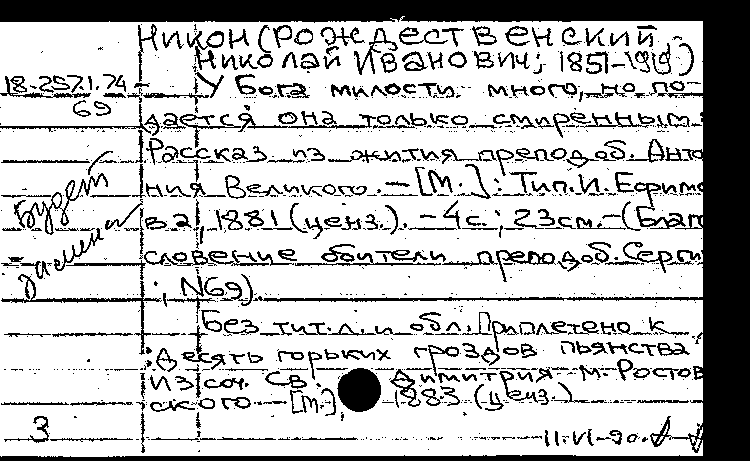 Никон (Рождественский
Николай Иванович; 1851-1919)
18.257.1.74-
69
У Бога милости много, но по-
дается она только смиренным:
Рассказ из жития преподоб. Анто
ния Великого. - [М.]: Тип. И. Ефимо
ва, 1881 (ценз.). - 4с.; 23см. - (Благо
словение обители преподоб. Серги
; N69).
Будет
замена
Без тит.л. и обл. Приплетено к
: Десять горьких гроздов пьянства
из соч. Св. Димитрия м. Ростов
ского - [М.], 1883 (ценз.)
3
11.VI-90.